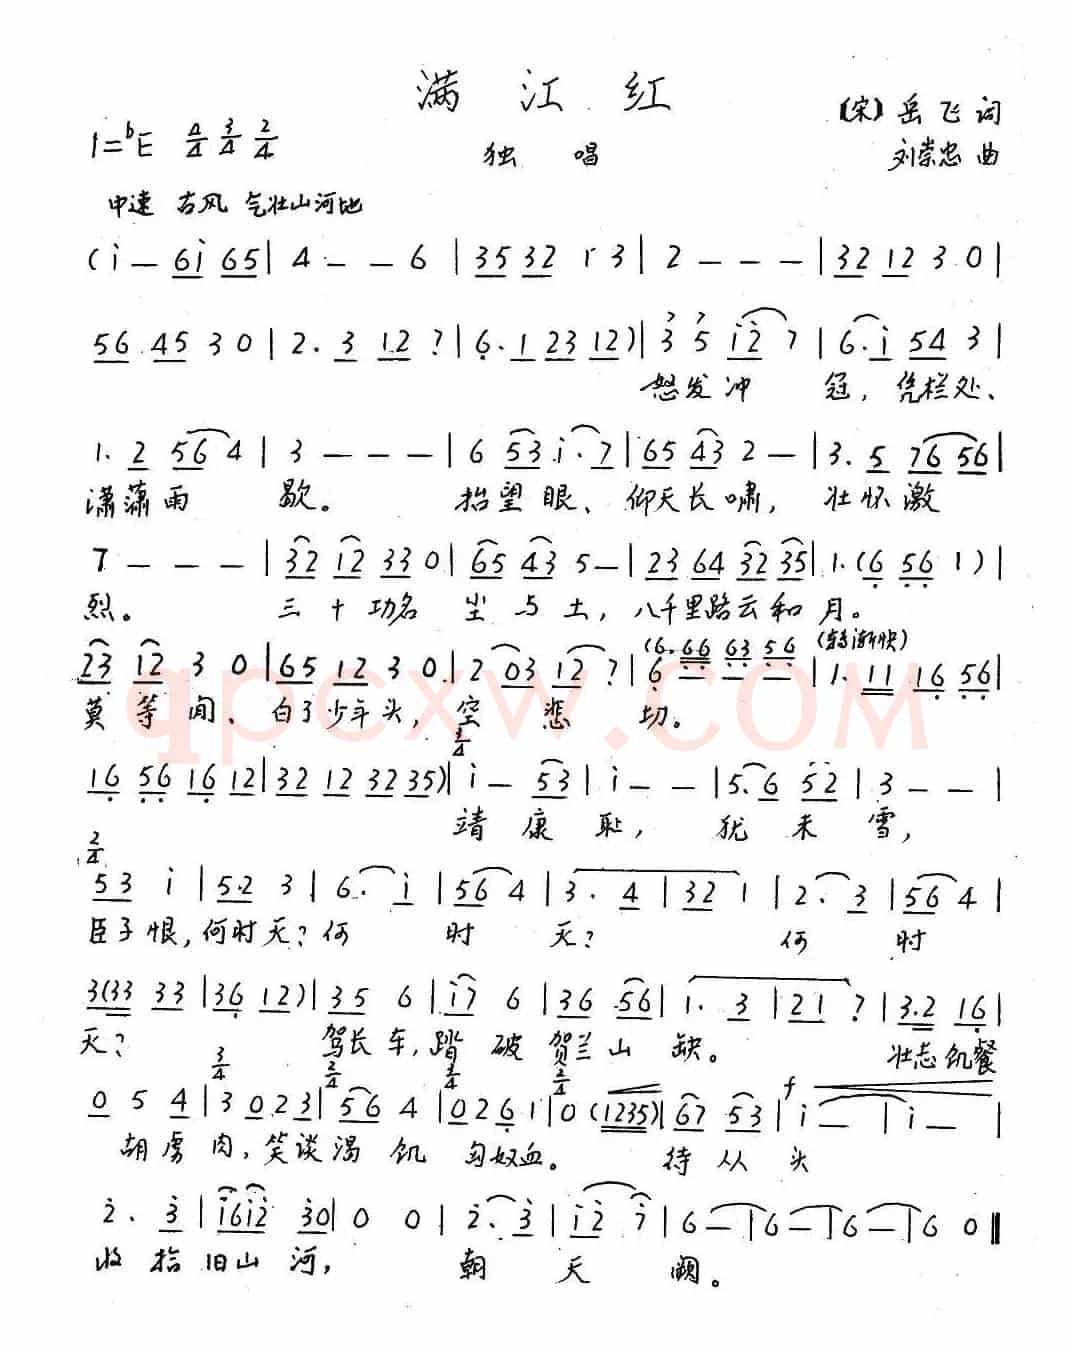 满江红
【宋】岳飞词
1=ᵇE 4/4 3/4 2/4
独唱
刘崇忠曲
中速 古风 气壮山河地
(i — 6i 65 | 4 — — 6 | 35 32 1 3 | 2 — — — | 32 12 3 0 |
56 45 3 0 | 2. 3 1.2 7 | 6. 1 23 12) | 3 5 i2 7 | 6. i 54 3 |
怒发冲冠，凭栏处、
1. 2 56 4 | 3 — — — | 6 53 i. 7 | 65 43 2 — | 3. 5 76 56 |
潇潇雨歇。抬望眼、仰天长啸，壮怀激
7 — — — | 32 12 33 0 | 65 43 5 — | 23 64 32 35 | 1. (6 56 1) |
烈。三十功名尘与土，八千里路云和月。
(6. 66 63 56 (转渐快)
23 12 3 0 | 65 12 3 0 | 2 03 12 7 | 6 — — — | 1. 11 16 56 |
莫等闲、白了少年头，空悲切。
3/4
16 56 16 12 | 32 12 32 35) | i — 53 | i — — | 5. 6 52 | 3 — — |
靖康耻，犹未雪，
2/4
53 i | 5.2 3 | 6. i | 56 4 | 3. 4 | 32 1 | 2. 3 | 56 4 |
臣子恨，何时灭？何时灭？何时
3(33 33 | 36 12) | 35 6 | i7 6 | 36 56 | 1. 3 | 21 7 | 3.2 16 |
灭？驾长车，踏破贺兰山缺。壮志饥餐
3/4 2/4 3/4 2/4 f
0 5 4 | 3 023 | 56 4 | 026 1 | 0 (1235) | 67 53 | i — | i — |
胡虏肉，笑谈渴饮匈奴血。待从头
2. 3 | i6i2 30 | 0 0 | 2. 3 | i2 7 | 6 — | 6 — | 6 — | 6 0 ‖
收拾旧山河，朝天阙。
qpcxw.COM